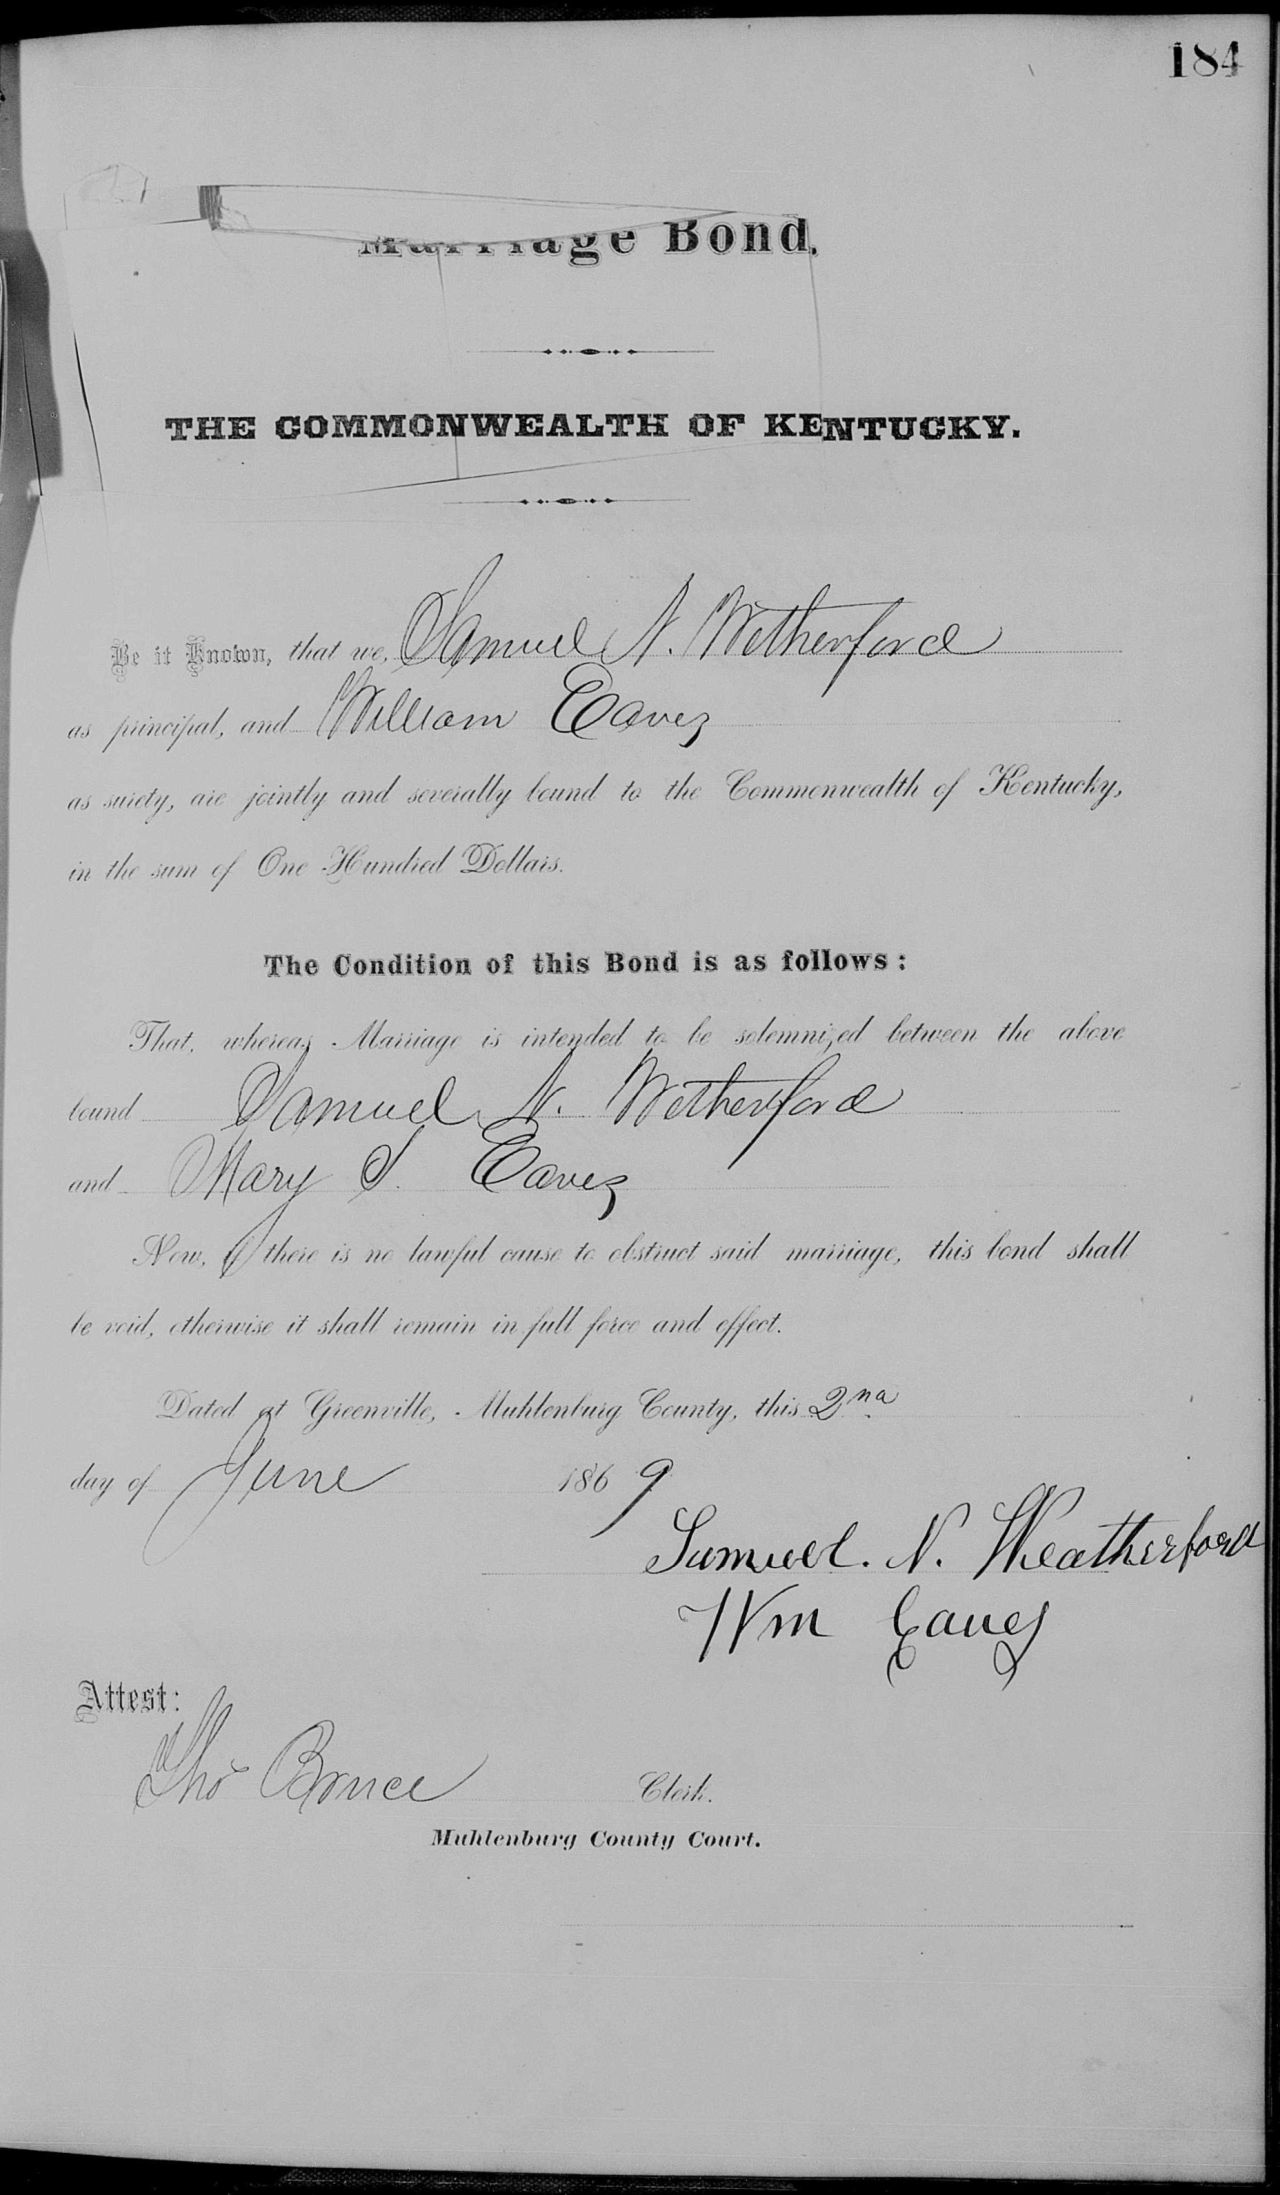 184
Marriage Bond.
THE COMMONWEALTH OF KENTUCKY.
Be it Known, that we, Samuel N. Wetherford
as principal, and William Eaves
as surety, are jointly and severally bound to the Commonwealth of Kentucky,
in the sum of One Hundred Dollars.
The Condition of this Bond is as follows:
That, whereas Marriage is intended to be solemnized between the above
bound Samuel N. Wetherford
and Mary S. Eaves
Now, if there is no lawful cause to obstruct said marriage, this bond shall
be void, otherwise it shall remain in full force and effect.
Dated at Greenville, Muhlenburg County, this 2nd
day of June 1869
Samuel. N. Weatherford
Wm Eaves
Attest:
Tho Bruce Clerk.
Muhlenburg County Court.